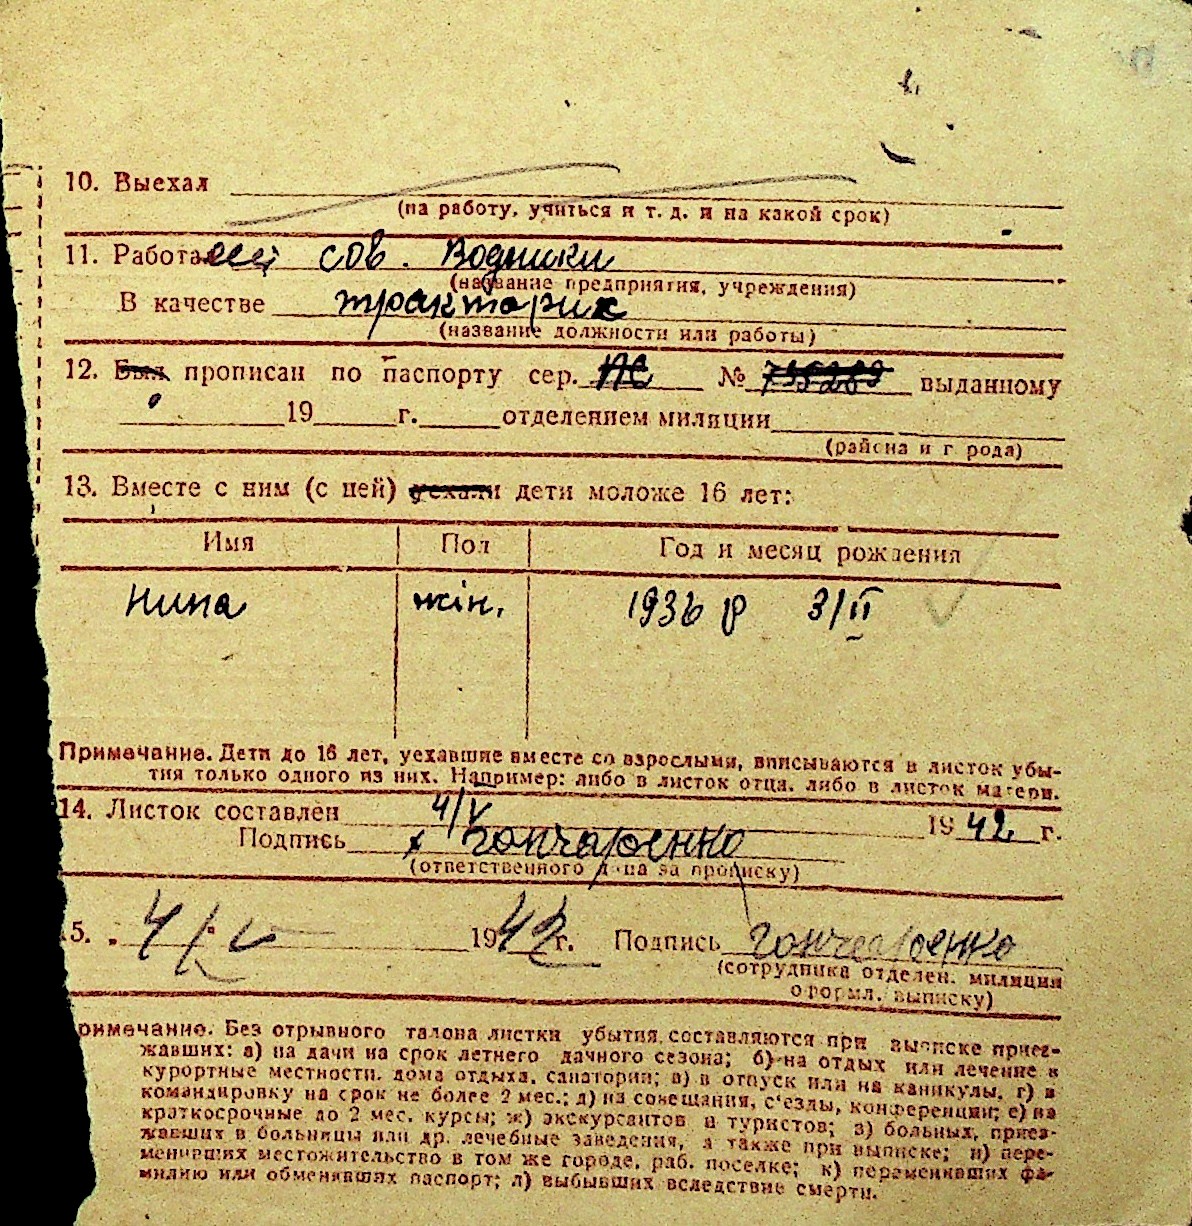 10. Выехал
(на работу, учиться и т. д. и на какой срок)
11. Работа сов. Водники
(название предприятия, учреждения)
В качестве тракторик
(название должности или работы)
12. Был прописан по паспорту сер. ПС № 735289 выданному
19 г. отделением милиции
(района и г рода)
13. Вместе с ним (с ней) уехали дети моложе 16 лет:
Имя Пол Год и месяц рождения
Нина жін. 1936 р 3/II
Примечание. Дети до 16 лет, уехавшие вместе со взрослыми, вписываются в листок убы-
тия только одного из них. Например: либо в листок отца, либо в листок матери.
14. Листок составлен 4/V 1942 г.
Подпись х Гончаренко
(ответственного л ца за прописку)
15. „ 4/V 1942 г. Подпись Гончаренко
(сотрудника отделен. милиции
оформл. выписку)
римечание. Без отрывного талона листки убытия составляются при выписке приез-
жавших: а) на дачи на срок летнего дачного сезона; б) на отдых или лечение в
курортные местности, дома отдыха, санатории; в) в отпуск или на каникулы, г) в
командировку на срок не более 2 мес.; д) на совещания, с'езды, конференции; е) на
краткосрочные до 2 мес. курсы; ж) экскурсантов и туристов; з) больных, приез-
жавших в больницы или др. лечебные заведения, а также при выписке; и) пере-
менивших местожительство в том же городе, раб. поселке; к) переменивших фа-
милию или обменявших паспорт; л) выбывших вследствие смерти.